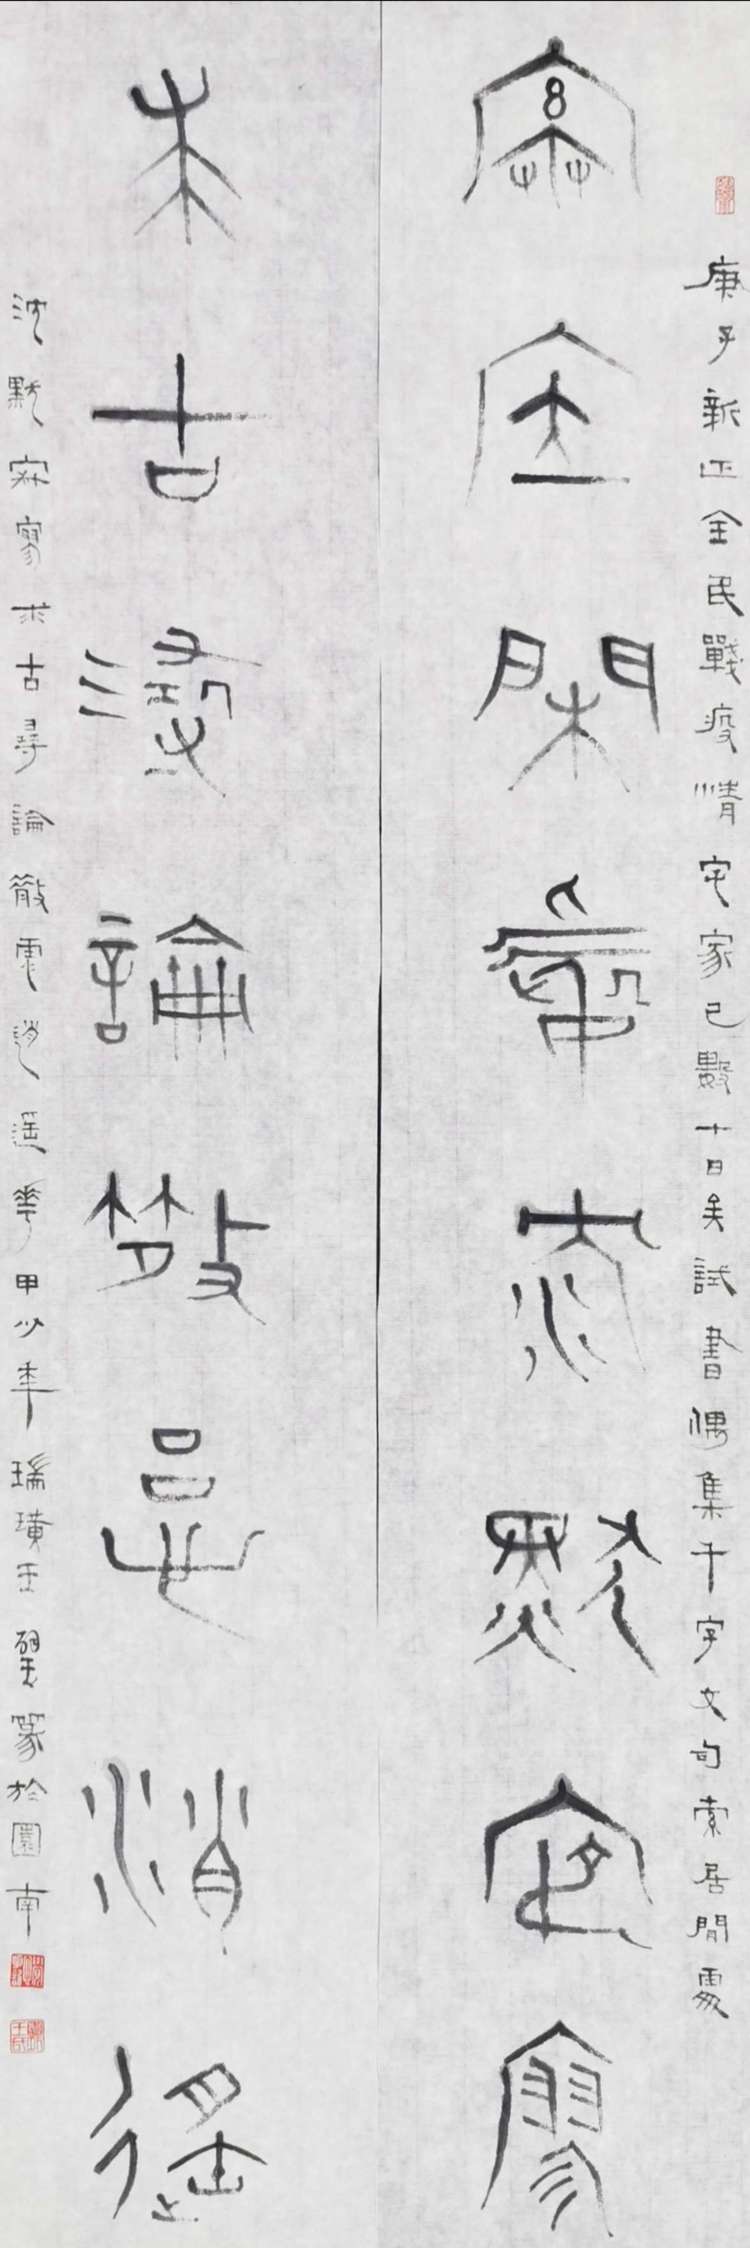 庚子新正全民戰疫情宅家已數十日矣試書偶集千字文句索居閒處
索居閑處沈默寂寥
求古尋論散慮消遙
沈默寂寥求古尋論散慮逍遙華甲少年瑞璜王篆於園南